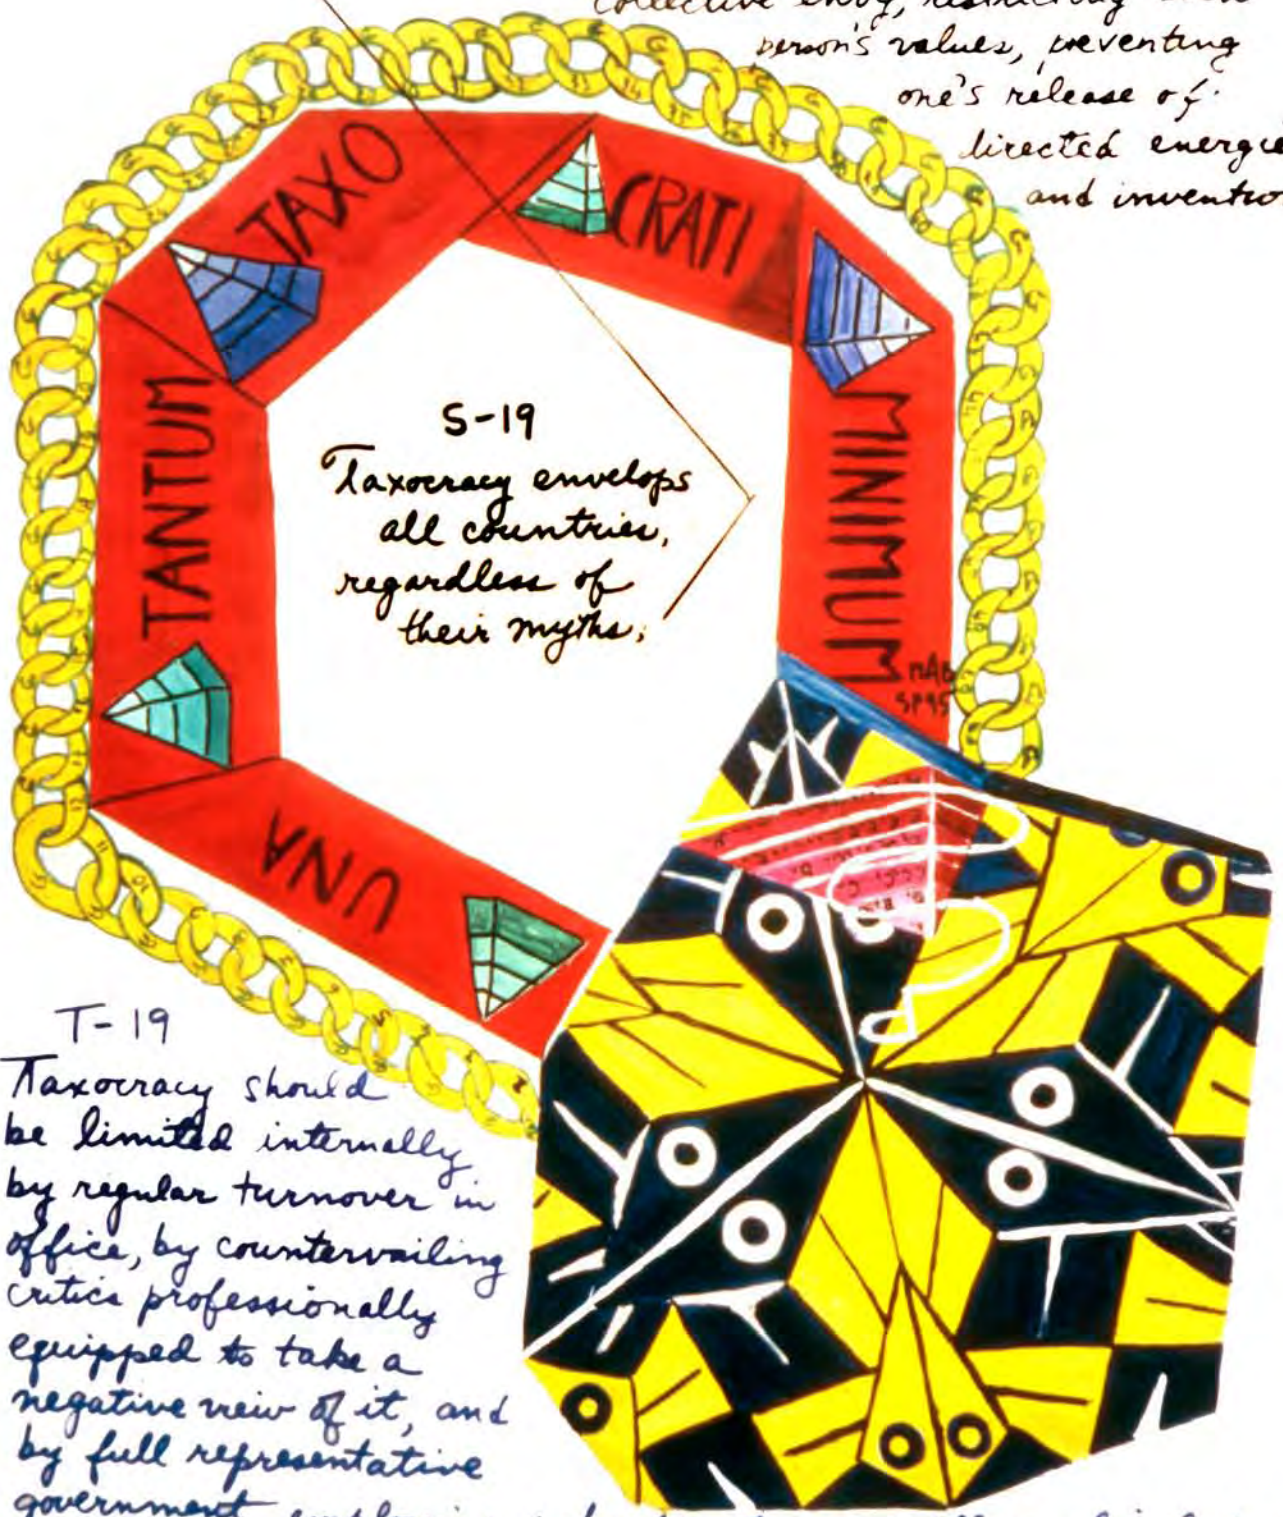 collective envy, restricting
person's values, preventing
one's release of
directed energie
and inventio
TAXO
CRATI
MINIMUM
TANTUM
UNA
MAB
SP95
S-19
Taxocracy envelops
all countries,
regardless of
their myths.
T-19
Taxocracy should
be limited internally
by regular turnover in
office, by countervailing
critics professionally
equipped to take a
negative view of it, and
by full representative
government